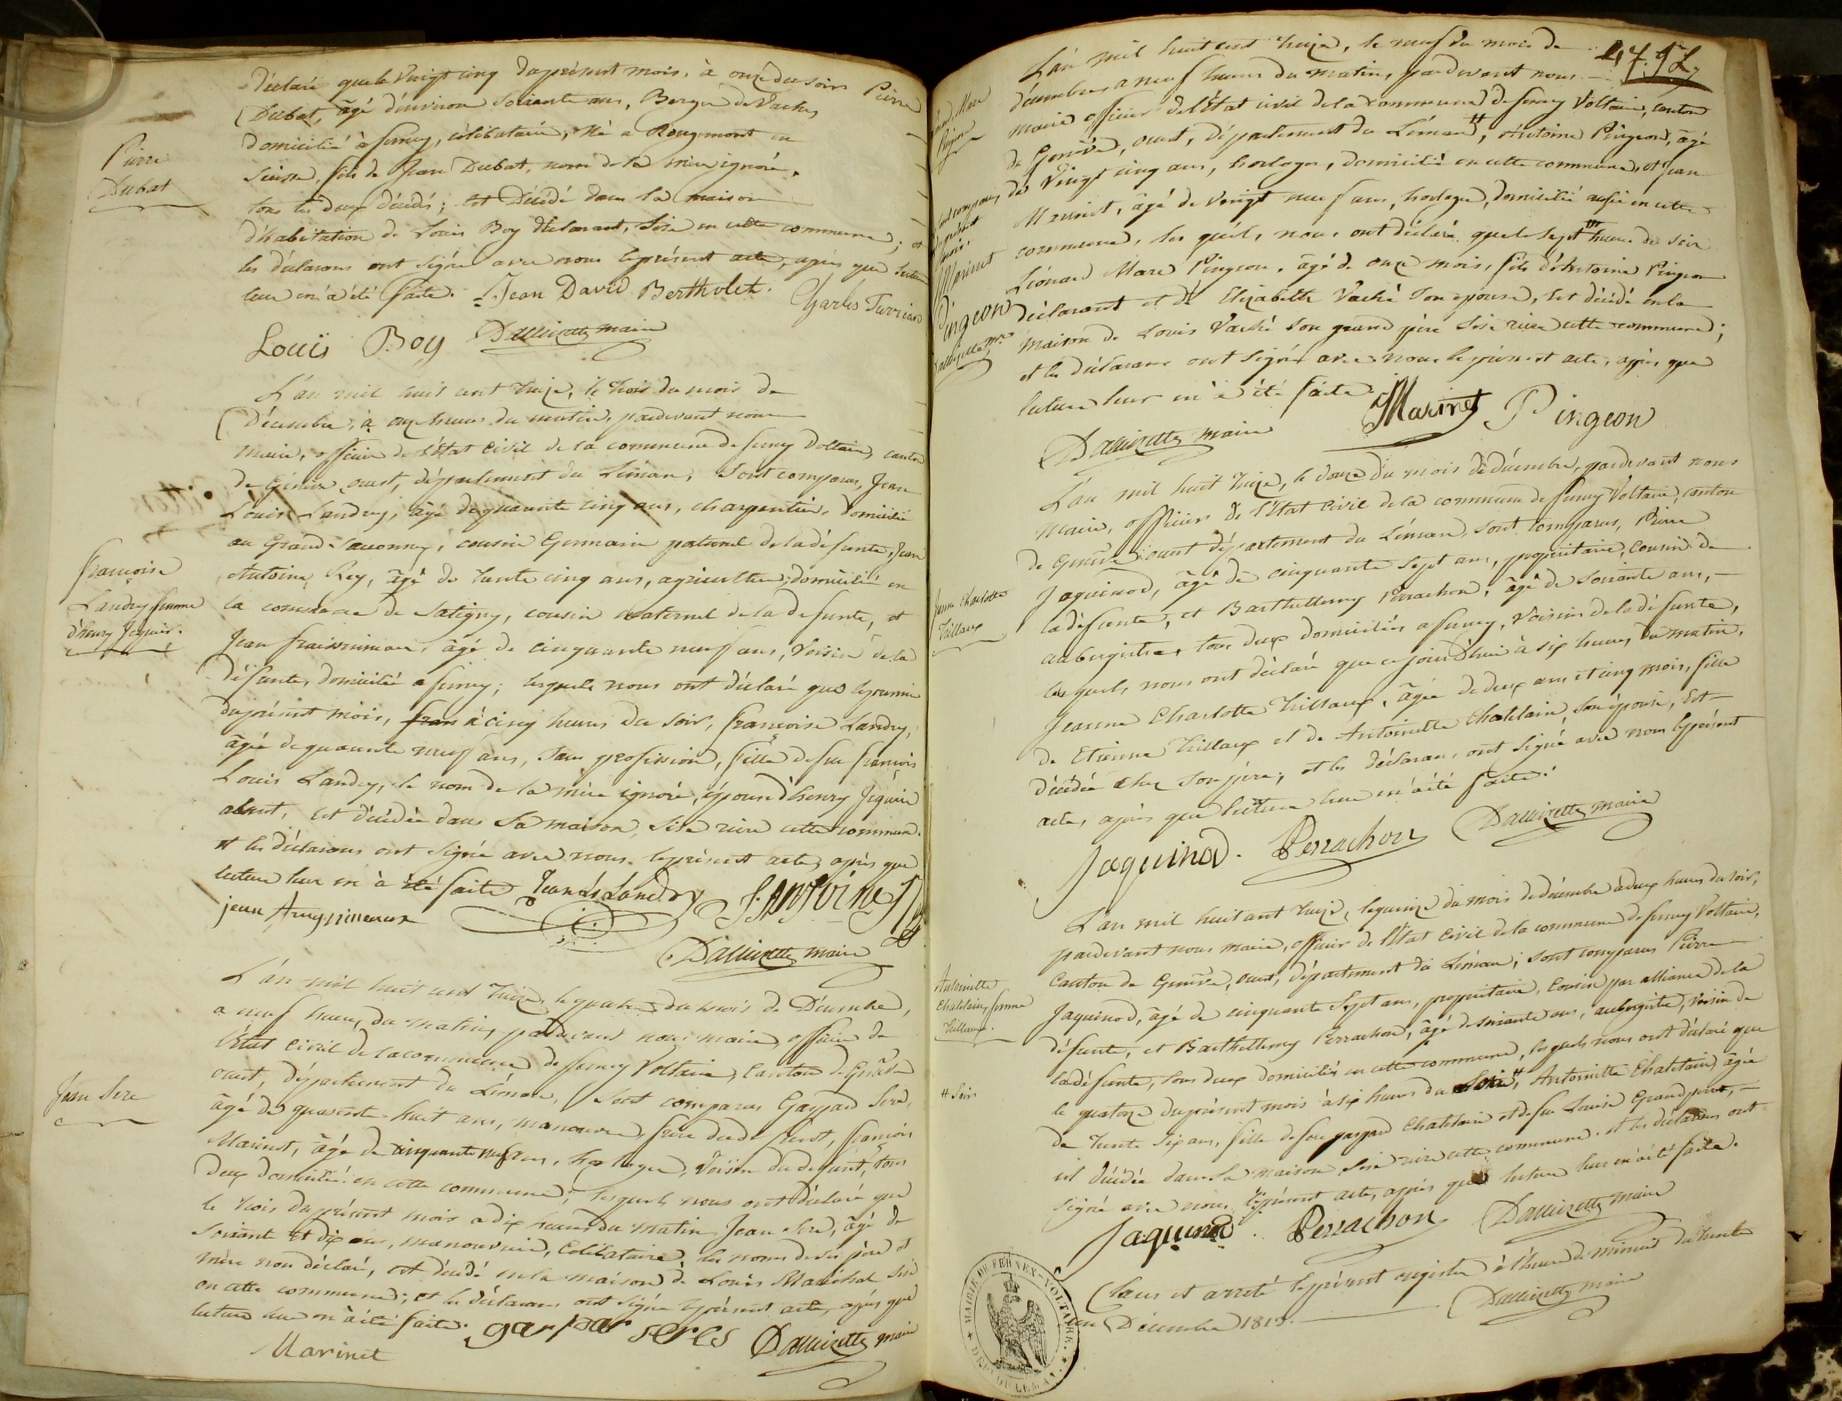 déclaré que le Vingt cinq du présent mois, à onze du soir Pierre
Dubat, âgé d'environ soixante ans, Berger de Vaches
domicilié à ferney, célibataire, Né à Rougemont en
Suisse, fils de Jean Dubat, nom de la mère ignoré,
tous les deux décédés; est Décédé dans la maison
d'habitation de Louis Boy déclarant, sise en cette commune; et
les déclarans ont signé avec nous le présent acte, après que lecture
leur en a été faite. Jean David Bertholet. Charles
Louis Boy Dallizette maire
Pierre
Dubat
L'an mil huit cent treize, le trois du mois de
Décembre, à onze heures du matin, pardevant nous
Maire, officier de l'Etat Civil de la commune de ferney Voltaire, canton
de Genève, ouest, département du Léman, sont comparus, Jean
Louis Landry, âgé de quarante cinq ans, charpentier, domicilié
au Grand-Saconney, cousin Germain paternel de la défunte, Jean
Antoine Rey, âgé de trente cinq ans, agriculteur, domicilié en
la commune de Satigny, cousin maternel de la défunte, et
Jean , âgé de cinquante neuf ans, Voisin de la
défunte, domicilié à ferney; lesquels nous ont déclaré que le premier
du présent mois, à cinq heures du soir, françoise Landry,
âgée de quarante neuf ans, sans profession, fille de feu françois
Louis Landry, le nom de la mère ignoré, épouse d'henry Jequier
absent, est décédée dans sa maison, sise rière cette commune.
et les déclarans ont signé avec nous le présent acte, après que
lecture leur en à été faite Jean Ls Landry J. Antoine
jean
Dallizette maire
françoise
Landry femme
d'henry Jequier.
L'an mil huit cent treize, le quatre du mois de Décembre,
a neuf heures du matin, pardevant nous maire officier de
l'état civil de la commune de ferney Voltaire, Canton de Genève
ouest, département du Léman, sont comparus Gaspard Sere,
âgé de quarante-huit ans, manouvrier, frère du defunt, françois
Marinet, âgé de cinquante neuf ans, horloger, Voisin du defunt, tous
deux domiciliés en cette commune; lesquels nous ont déclaré que
le trois du présent mois a dix heures du matin, Jean Sere, âgé de
soixante et dix ans, manouvrier, Célibataire, les noms de ses père et
mère non déclaré, est décédé en la maison de Louis Maréchal sise
en cette commune; et les déclarans ont signé le présent acte, après que
lecture leur en a été faite. gaspar seres Dallizette maire
Marinet
Jean Sere
47.
L'an mil huit cent treize, le neuf du mois de
décembre a neuf heures du matin, pardevant nous
maire officier de l'État civil de la commune de ferney Voltaire, canton
de Genève, ouest, département du Léman, Antoine Pingeon, âgé
de Vingt cinq ans, horloger, domicilié en cette commune, et Jean
Marinet, âgé de Vingt neuf ans, horloger, domicilié aussi en cette
commune, les quels, nous ont déclaré que le sept heures du soir
Léonard Marc Pingeon, âgé de onze mois, fils d'Antoine Pingeon
déclarant et de Elizabeth Vaché son épouse, est décédé en la
maison de Louis Vaché son grand père sise rière cette commune;
et les déclarans ont signé avec nous le présent acte, après que
lecture leur en a été faite. Marinet Pingeon
Dallizette maire
sont comparus
Marinet
Pingeon
Dallizette mre
L'an mil huit treize, le douze du mois de décembre, pardevant nous
Maire, officier de l'État Civil de la commune de ferney Voltaire, canton
de Genève ouest département du Léman sont comparus, Pierre
Jaquinod, âgé de cinquante sept ans, propriétaire, Cousin de
la défunte, et Barthellemy Perrachon, âgé de soixante ans,
aubergiste, tous deux domiciliés a ferney, voisin de la défunte,
les quels, nous ont déclaré que ce jour d'hui à six heures du matin,
Jeanne Charlotte Tuillaux, âgée de deux ans et cinq mois, fille
de Etienne Tuillaux et de Antoinette Chatelain, son épouse, est
décédée chez son père, et les déclarans, ont signé avec nous le présent
acte, après que lecture leur en a été faite.
Jaquinod. Perrachon Dallizette maire
Jeanne Charlotte
Tuillaux
L'an mil huit cent treize, le quinze du mois de décembre à deux heures du soir,
pardevant nous maire, officier de l'État Civil de la commune de ferney Voltaire,
Canton de Genève, ouest, département du Léman; sont comparus Pierre
Jaquinod, âgé de cinquante sept ans, propriétaire, Cousin par alliance de la
défunte, et Barthellemy Perrachon, âgé de soixante ans, aubergiste, voisin de
la défunte, tous deux domiciliés en cette commune, lesquels nous ont déclaré que
le quatorze du présent mois à six heures du Antoinette Chatelain, âgée
de trente six ans, fille de feu gaspard Chatelain et de feu Louise Grandjean,
est décédée dans sa maison, sise rière cette commune. et les déclarans ont
signé avec nous le présent acte, après que lecture leur en a été faite.
Jaquinod. Perrachon Dallizette maire
Antoinette
Chatelain, femme
Tuillaux.
# Soir
Clos et arrêté le présent registre à l'heure de minuit du trente
un Décembre 1813. Dallizette maire
MAIRIE DE FERNEX-VOLTAIRE
DEPT DU LEMAN